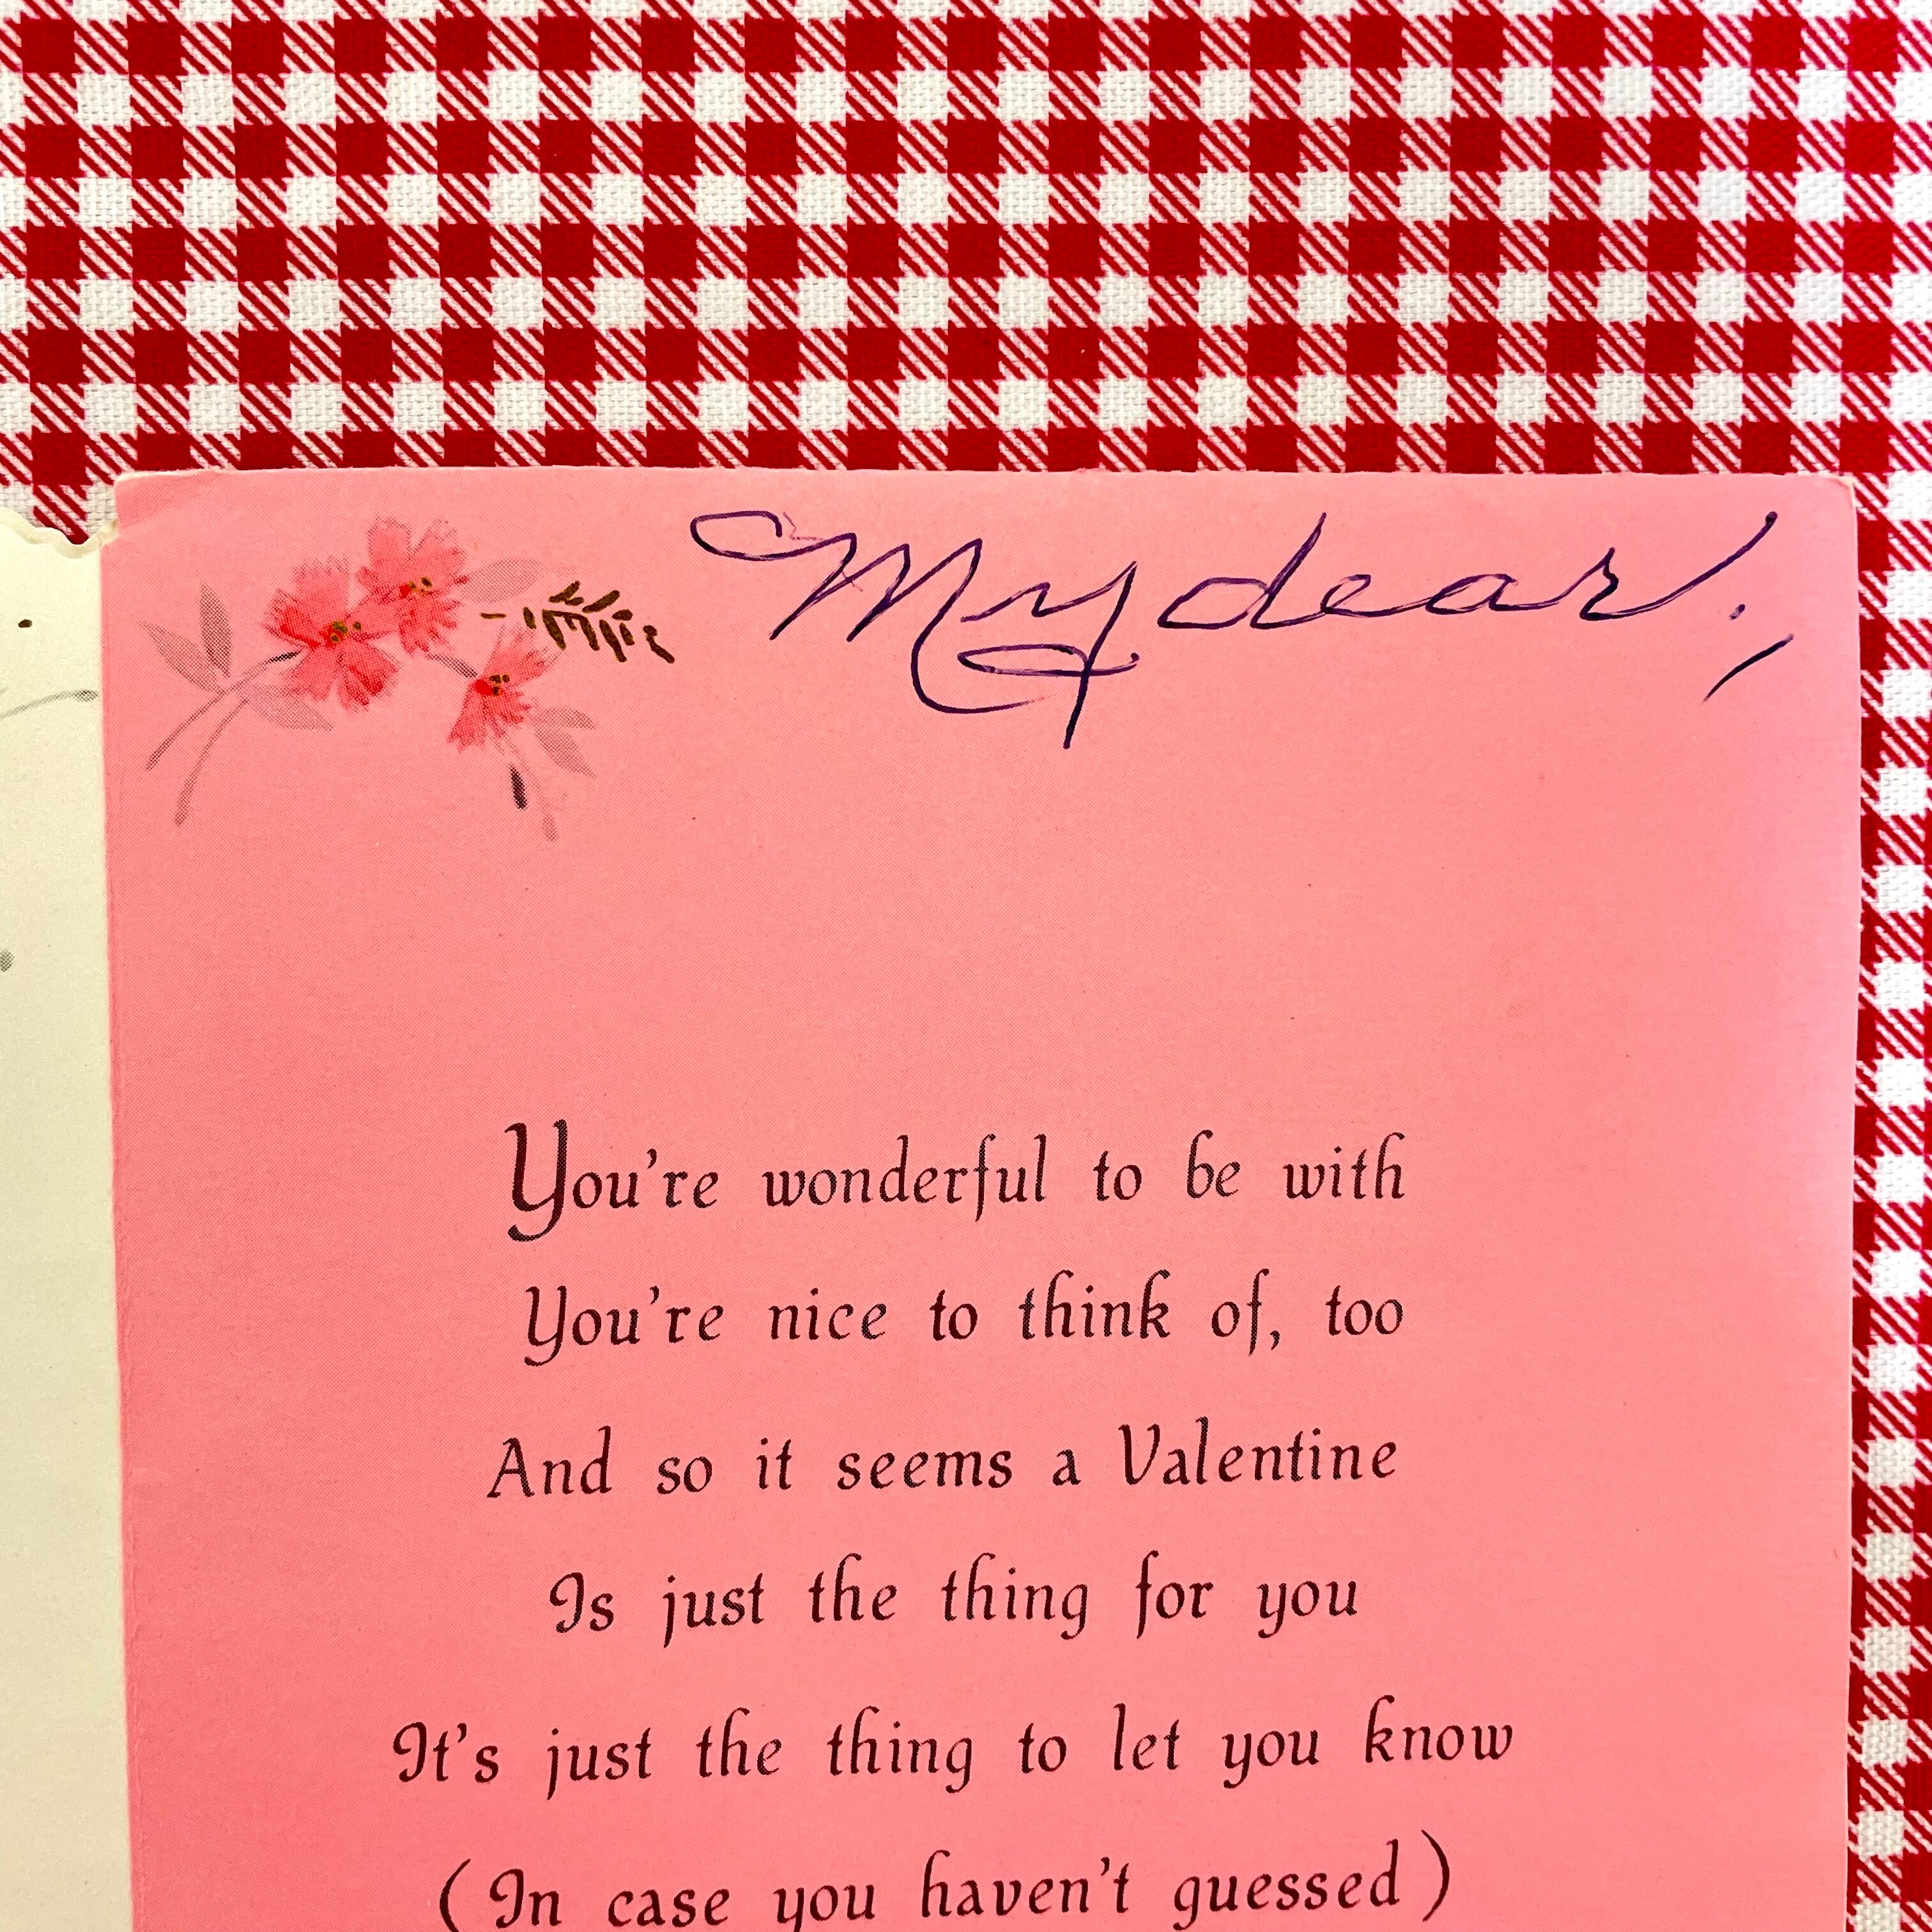 My dear,
You're wonderful to be with
You're nice to think of, too
And so it seems a Valentine
Is just the thing for you
It's just the thing to let you know
(In case you haven't guessed)